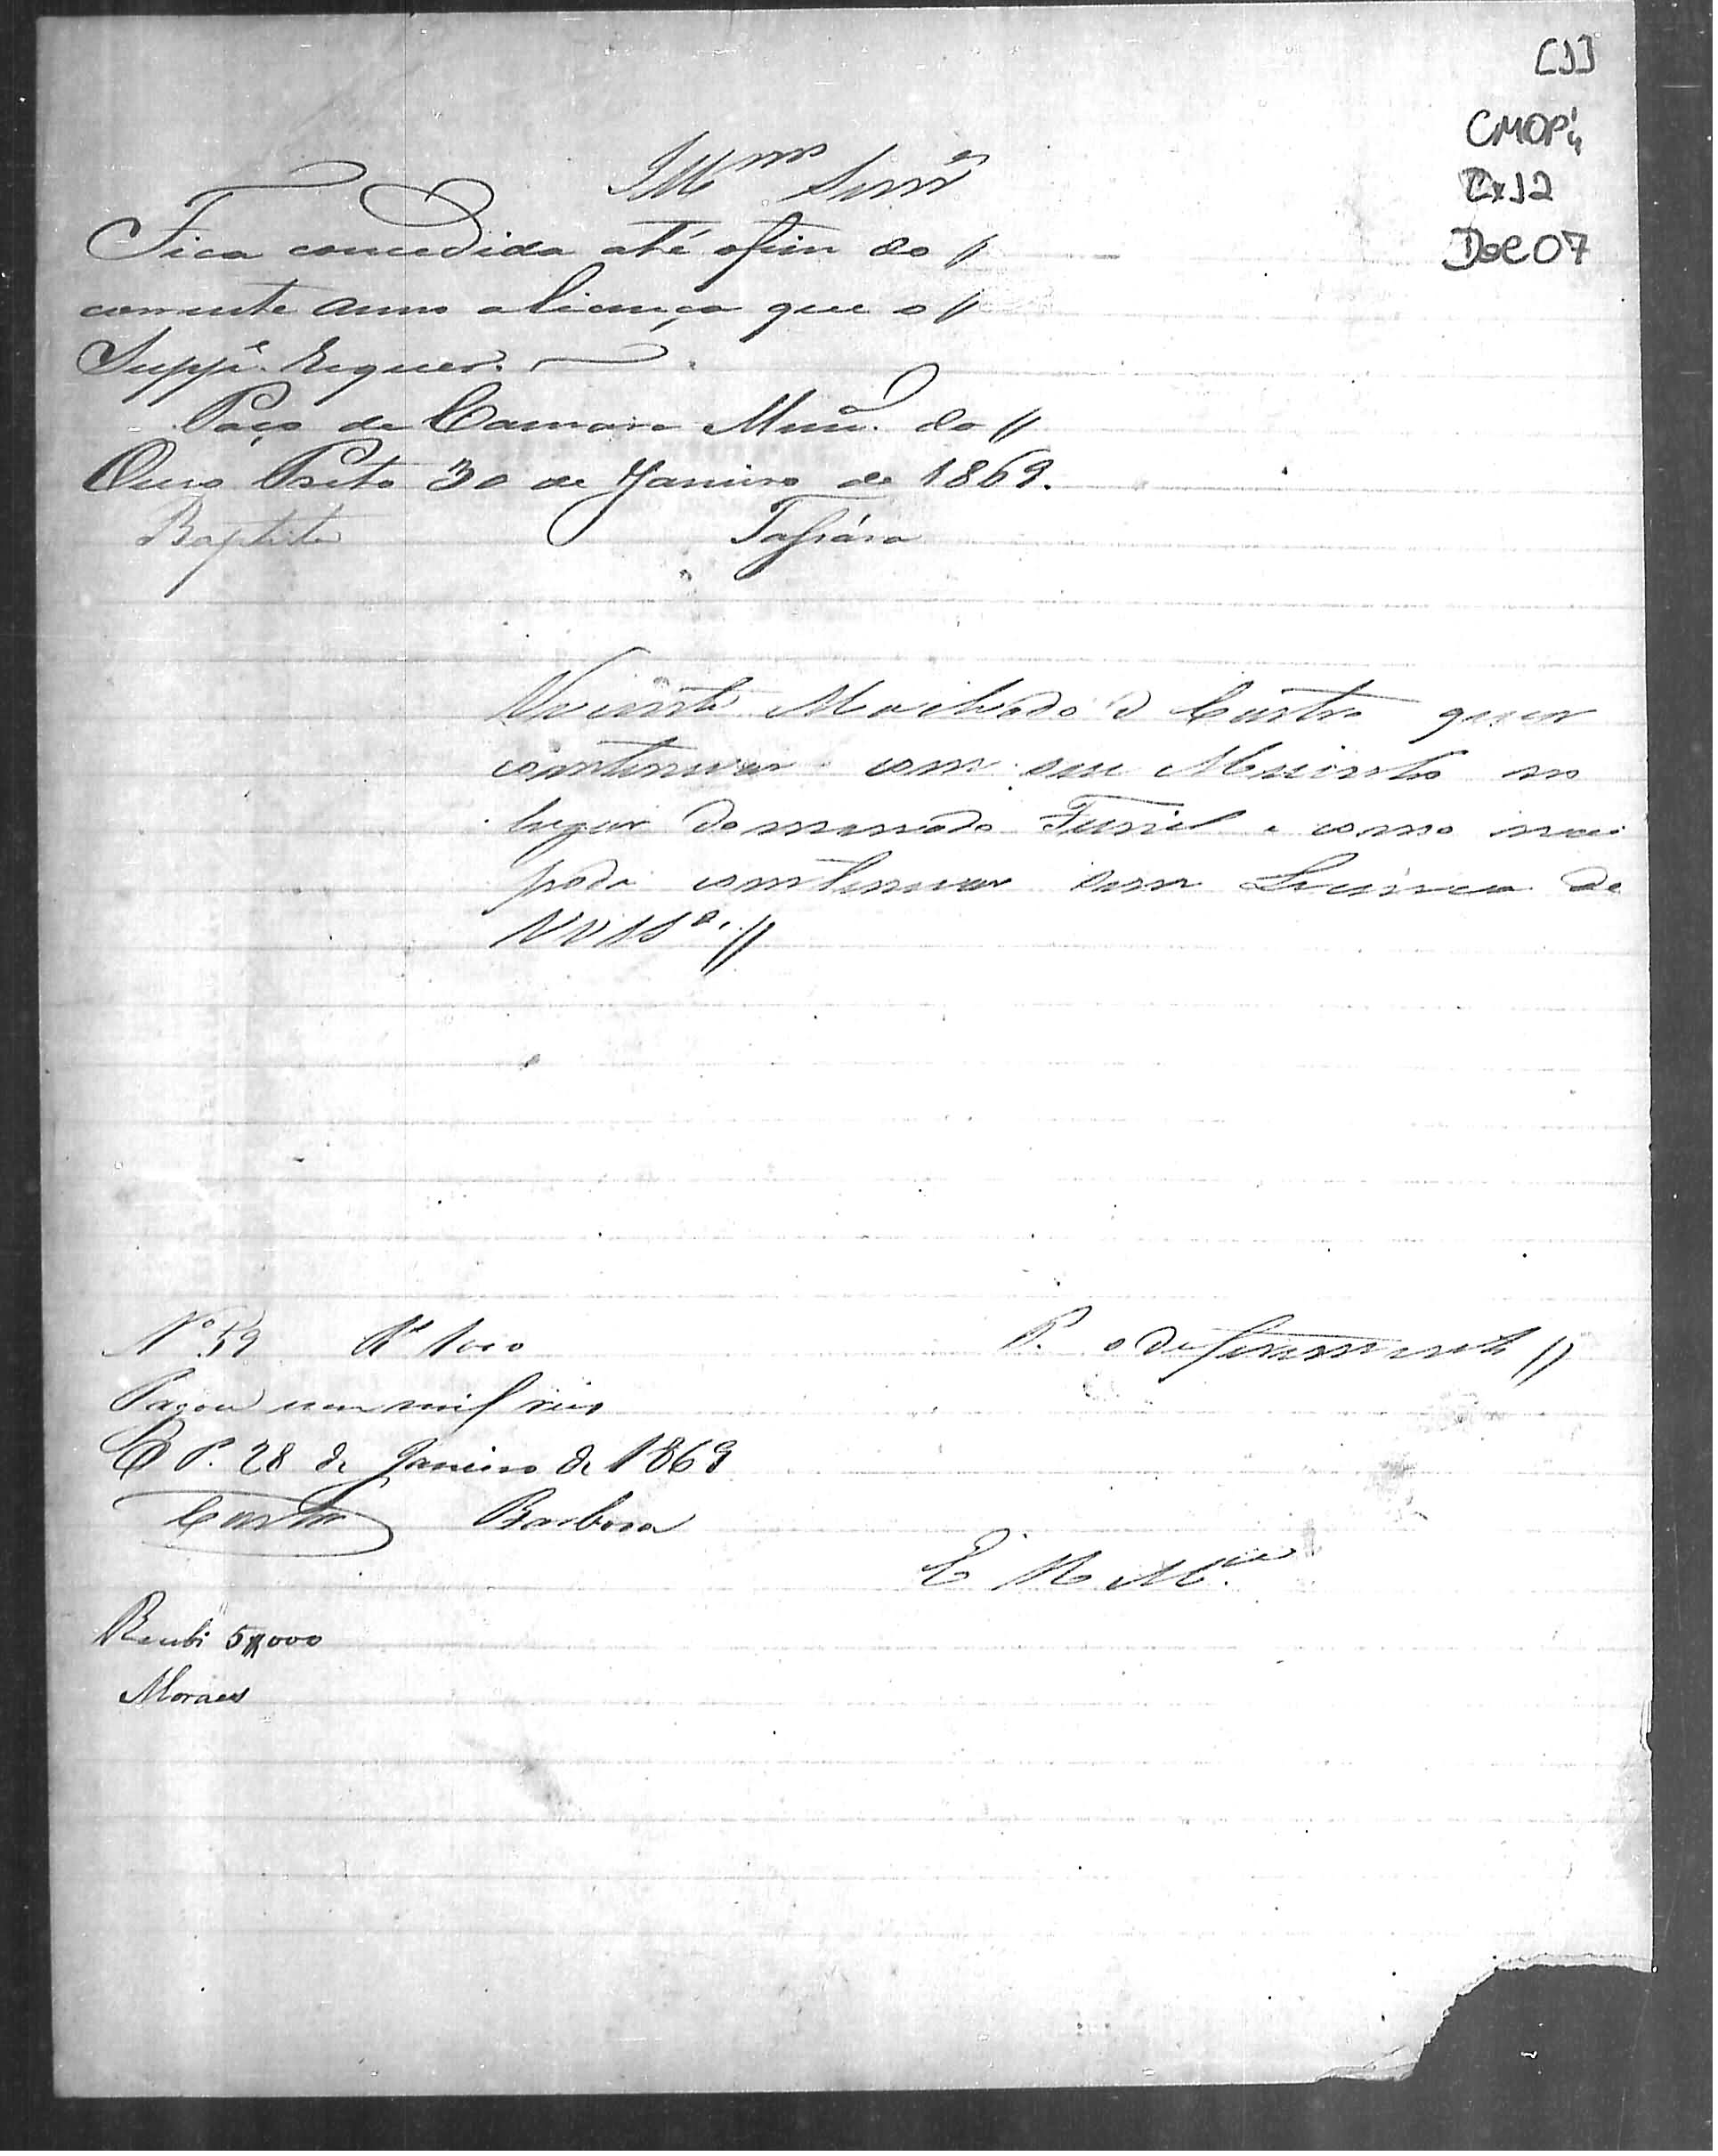 [1]
CMOP
Cx 12
Doc 07
Illmos Senres
Fica concedida até ofim do //
corrente anno a licença que o //
Suppe. requer.
Paço da Camara Mun. do //
Ouro Preto 30 de Janeiro de 1869.
Baptista
Vicente Machado d Castro quer
continuar com seu no
lugar domenado Funil e como nai
poda continuar sem Licenca de
VV SSas. //
No 59 Rs 1000
P. o deferemento //
Pagou um mil reis
O P. 28 de Janeiro de 1869
Castro Barbosa
E R Mce
Recebi 5$000
Moraes